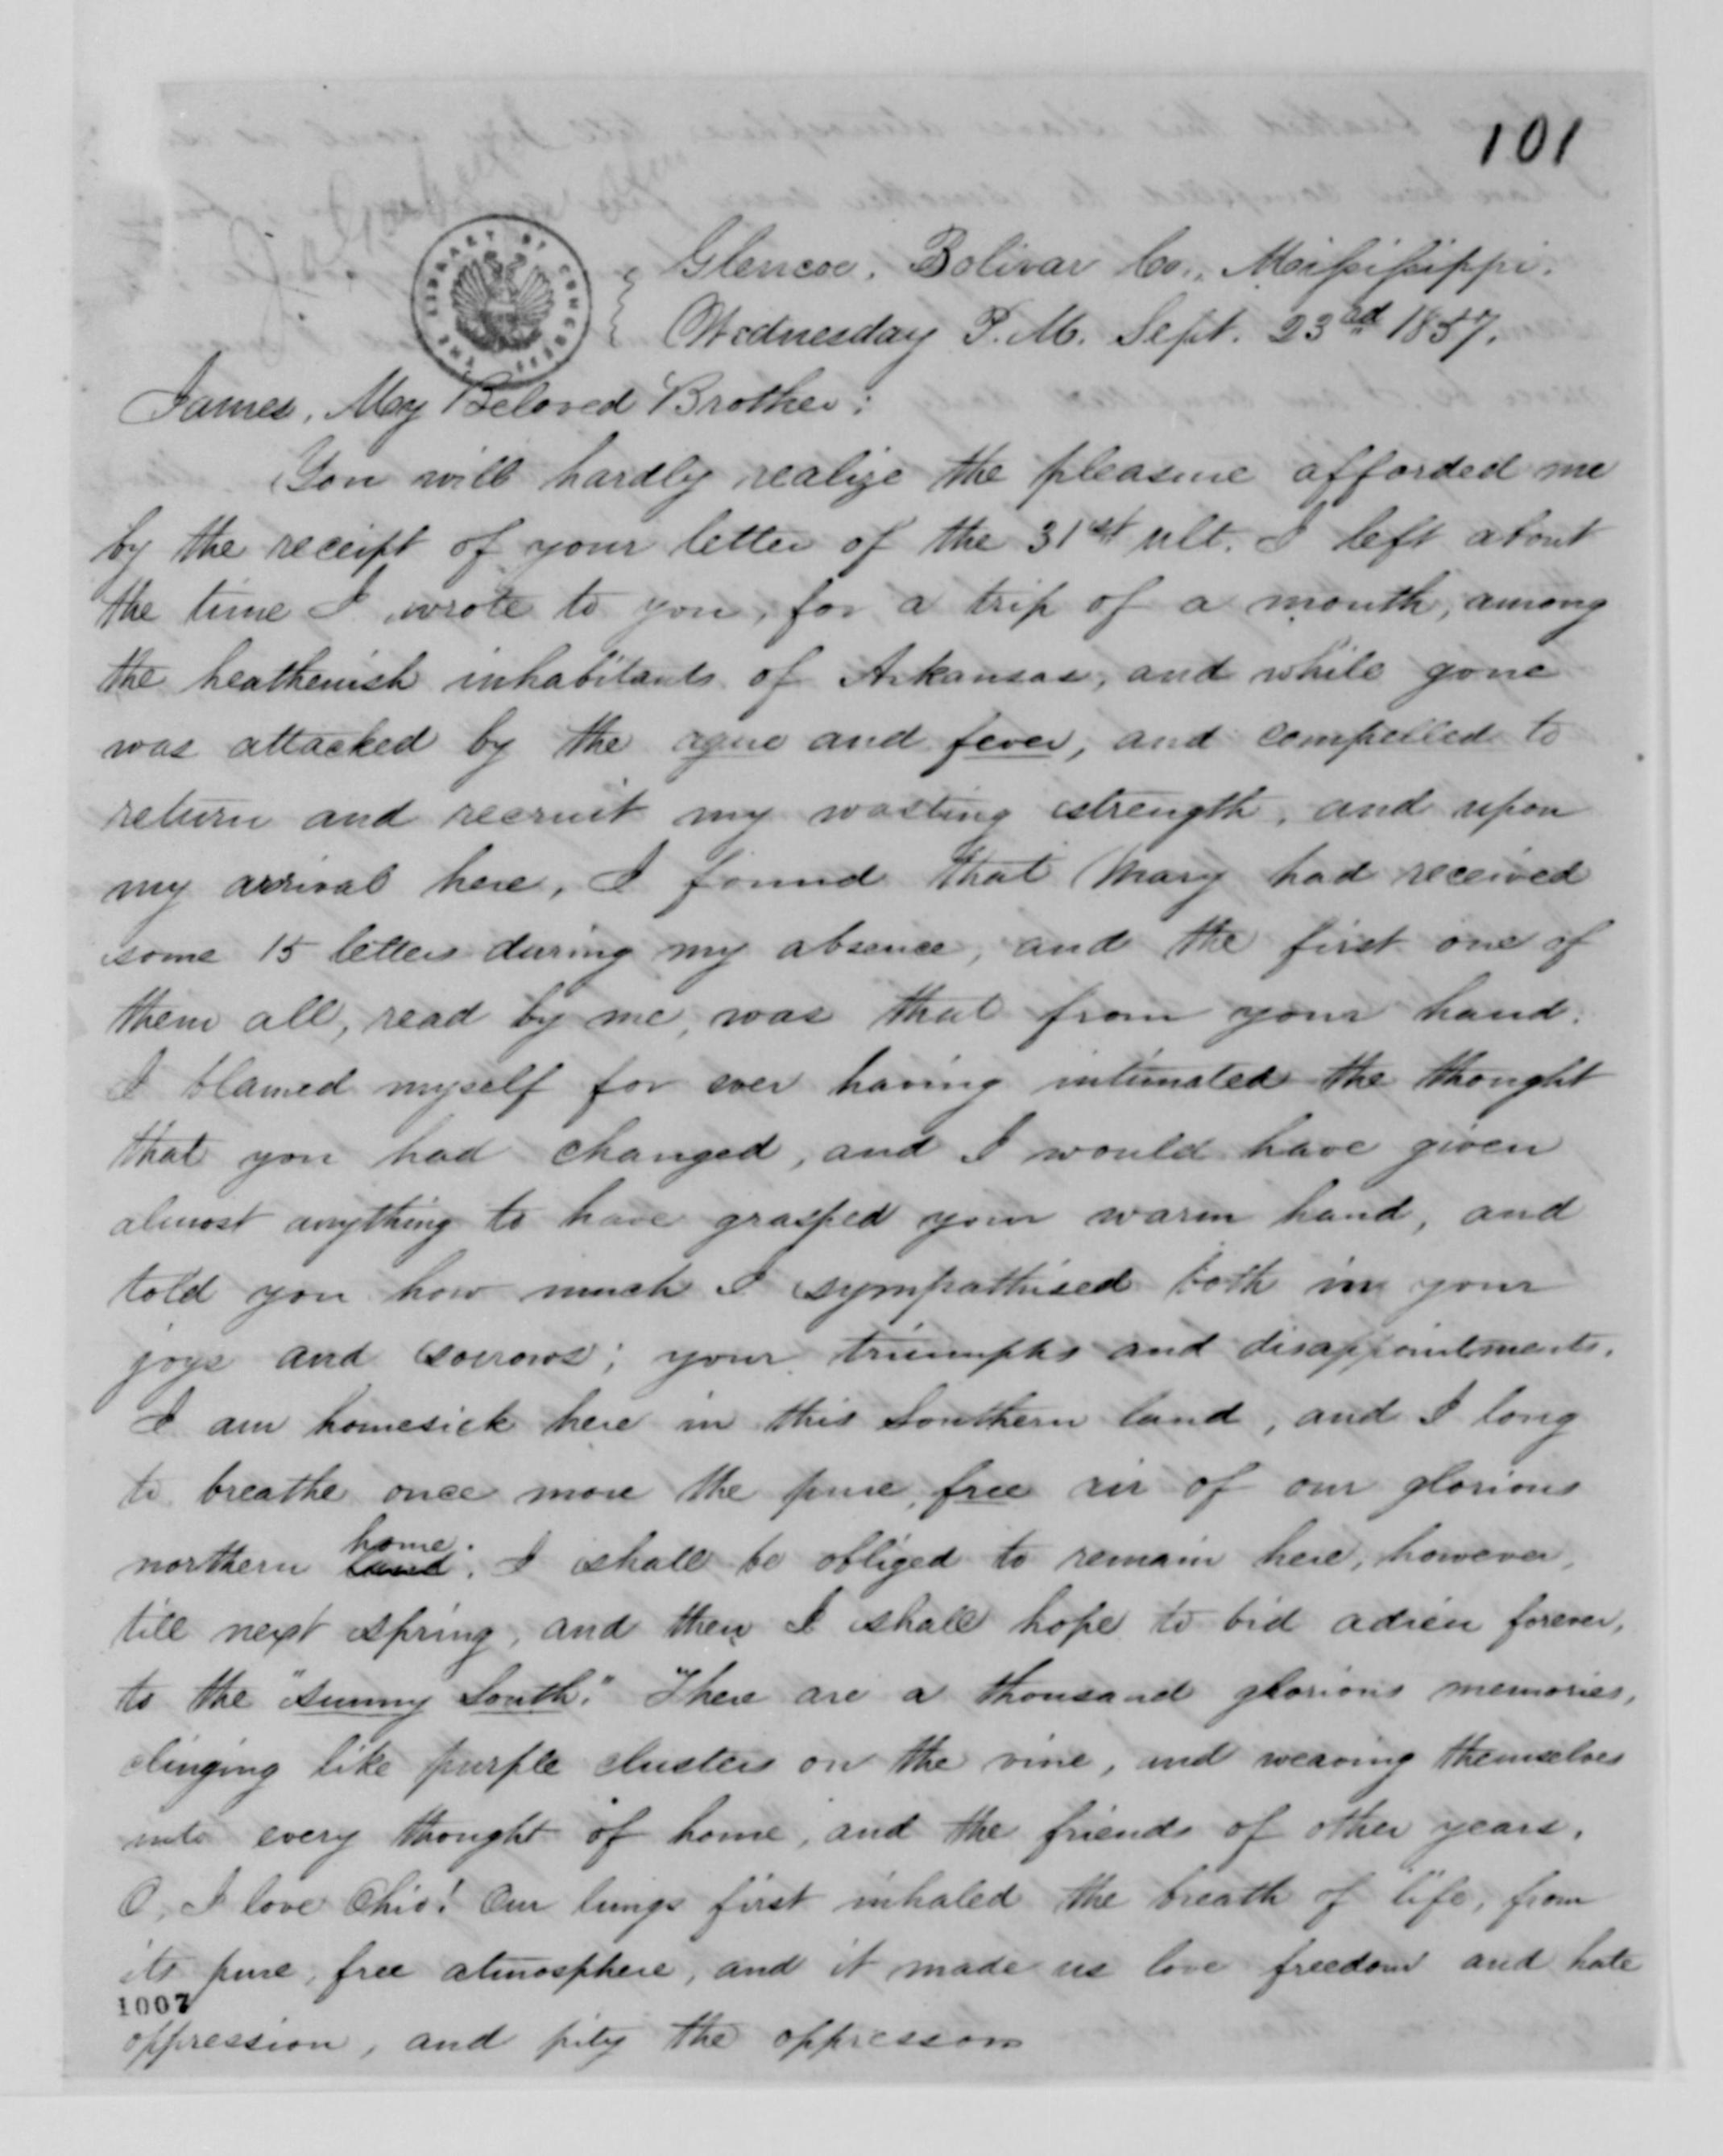 101
THE LIBRARY OF CONGRESS
Glencoe, Bolivar Co., Mississippi.
Wednesday P.M. Sept. 23rd 1857.
James, My Beloved Brother:
You will hardly realize the pleasure afforded me
by the receipt of your letter of the 31st ult. I left about
the time I wrote to you, for a trip of a month, among
the heathenish inhabitants of Arkansas, and while gone
was attacked by the ague and fever, and compelled to
return and recruit my wasting strength, and upon
my arrival here, I found that Mary had received
some 15 letters during my absence, and the first one of
them all, read by me, was that from your hand.
I blamed myself for ever having intimated the thought
that you had changed, and I would have given
almost anything to have grasped your warm hand, and
told you how much I sympathised both in your
joys and sorrows; your triumphs and disappointments.
I am homesick here in this Southern land, and I long
to breathe once more the pure, free air of our glorious
northern land home. I shall be obliged to remain here, however,
till next spring, and then I shall hope to bid adieu forever,
to the "sunny South." There are a thousand glorious memories,
clinging like purple clusters on the vine, and weaving themselves
into every thought of home, and the friends of other years.
O, I love Ohio! Our lungs first inhaled the breath of life, from
its pure, free atmosphere, and it made us love freedom and hate
1007
oppression, and pity the oppressor